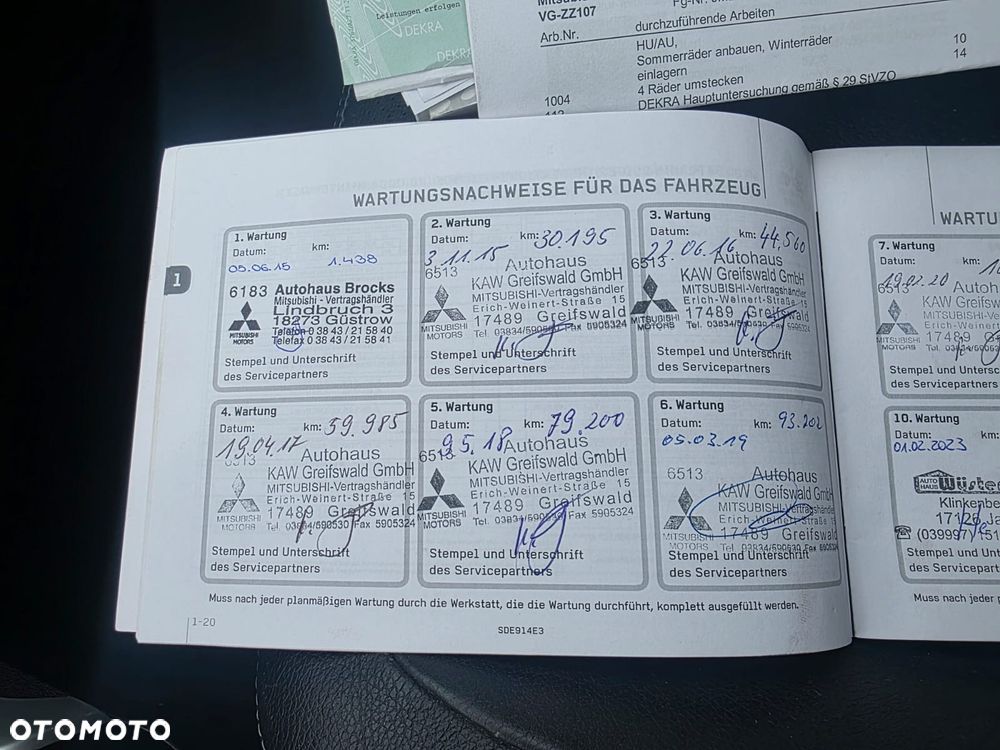 Leistungen erfolgen
DEKRA
DEKRA
VG-ZZ107
Arb.Nr.
durchzuführende Arbeiten
HU/AU,
Sommerräder anbauen, Winterräder
einlagern
4 Räder umstecken
1004
DEKRA Hauptuntersuchung gemäß § 29 StVZO
10
14
WARTUNGSNACHWEISE FÜR DAS FAHRZEUG
1
1. Wartung
Datum: km:
05.06.15 1.438
6183 Autohaus Brocks
Mitsubishi - Vertragshändler
Lindbruch 3
18273 Güstrow
Telefon 0 38 43 / 21 58 40
Telefax 0 38 43 / 21 58 41
MITSUBISHI
MOTORS
Stempel und Unterschrift
des Servicepartners
2. Wartung
Datum: km: 30.195
3.11.15
6513 Autohaus
KAW Greifswald GmbH
MITSUBISHI-Vertragshändler
Erich-Weinert-Straße 15
17489 Greifswald
Tel. 03834/590530 Fax 5905324
MITSUBISHI
MOTORS
Stempel und Unterschrift
des Servicepartners
3. Wartung
Datum: km: 44,560
22.06.16
6513 Autohaus
KAW Greifswald GmbH
MITSUBISHI-Vertragshändler
Erich-Weinert-Straße 15
17489 Greifswald
Tel. 03834/590530 Fax 5905324
MITSUBISHI
MOTORS
Stempel und Unterschrift
des Servicepartners
4. Wartung
Datum: km: 59.985
19.04.17
6513 Autohaus
KAW Greifswald GmbH
MITSUBISHI-Vertragshändler
Erich-Weinert-Straße 15
17489 Greifswald
Tel. 03834/590530 Fax 5905324
MITSUBISHI
MOTORS
Stempel und Unterschrift
des Servicepartners
5. Wartung
Datum: km: 79.200
9.5.18
6513 Autohaus
KAW Greifswald GmbH
MITSUBISHI-Vertragshändler
Erich-Weinert-Straße 15
17489 Greifswald
Tel. 03834/590530 Fax 5905324
MITSUBISHI
MOTORS
Stempel und Unterschrift
des Servicepartners
6. Wartung
Datum: km: 93.202
05.03.19
6513 Autohaus
KAW Greifswald GmbH
MITSUBISHI-Vertragshändler
Erich-Weinert-Straße 15
17489 Greifswald
Tel. 03834/590530 Fax 5905324
MITSUBISHI
MOTORS
Stempel und Unterschrift
des Servicepartners
Muss nach jeder planmäßigen Wartung durch die Werkstatt, die die Wartung durchführt, komplett ausgefüllt werden.
1-20
SDE914E3
WARTU
7. Wartung
Datum:
19.02.20
6513 Autoh
KAW Gre
MITSUBISHI
Erich-We
17489
Tel. 03834/5905
MITSUBISHI
MOTORS
Stempel und Unters
des Servicepartners
10. Wartung
Datum:
01.02.2023
AUTO
HAUS
Wüsten
Klinkenbe
17126 Ja
(039997) 151
Stempel und Unters
des Servicepartners
Muss nach jeder p
OTOMOTO